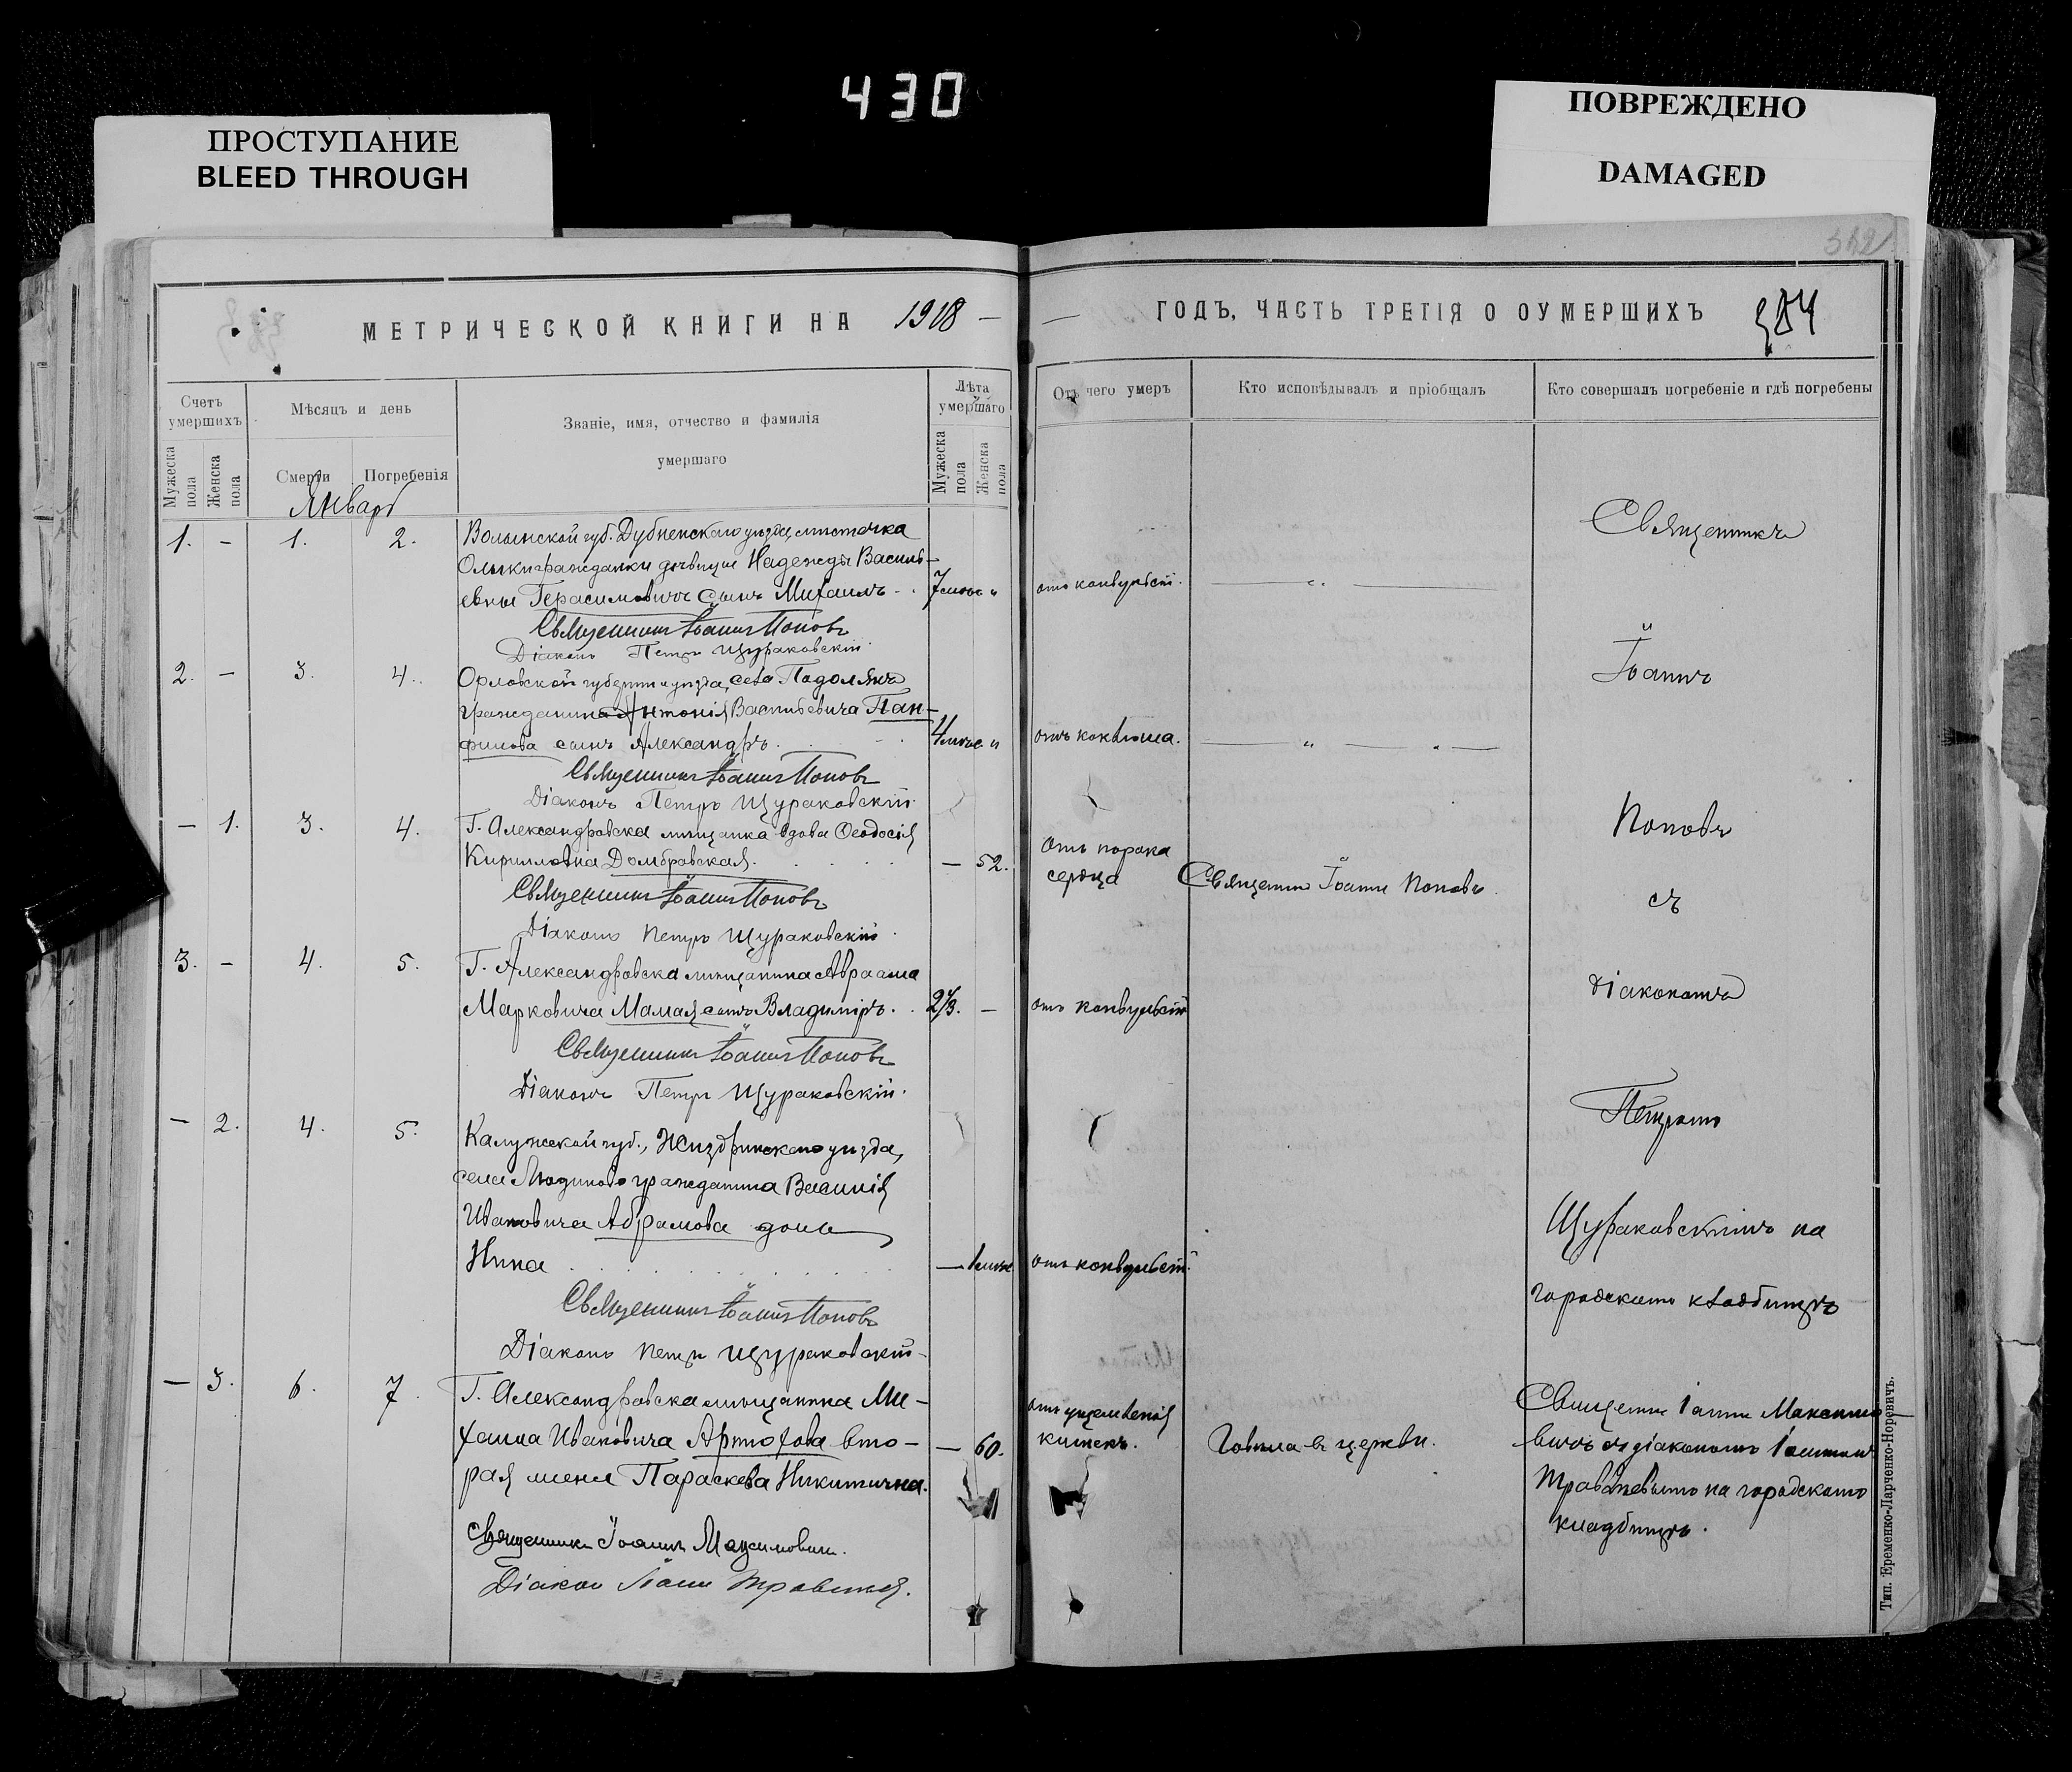 430
ПРОСТУПАНИЕ
BLEED THROUGH
ПОВРЕЖДЕНО
DAMAGED
МЕТРИЧЕСКОЙ КНИГИ НА 1918 —
Счетъ умершихъ
Мѣсяцъ и день
Званіе, имя, отчество и фамилія
умершаго
Лѣта умершаго
Мужеска пола
Женска пола
Смерти
Погребенія
Мужеска пола
Женска пола
Январь
1. — 1. 2. Волынской губ. Дубненскаго уѣзда, мѣстечка
Олыки гражданки дѣвицы Надежды Василь-
евны Герасимовичъ сынъ Михаилъ
Священникъ Іоаннъ Поповъ
Діаконъ Петръ Щураковскій
2. — 3. 4. Орловской губерніи уѣзда, села Подолянъ
гражданина Антонія Васильевича Пан-
филова сынъ Александръ
Священникъ Іоаннъ Поповъ
Діаконъ Петръ Щураковскій
— 1. 3. 4. Г. Александровска мѣщанка вдова Ѳеодосія
Кирилловна Домбровская. — 52.
Священникъ Іоаннъ Поповъ
Діаконъ Петръ Щураковскій
3. — 4. 5. Г. Александровска мѣщанина Авраама
Марковича Мамая сынъ Владиміръ. —
Священникъ Іоаннъ Поповъ
Діаконъ Петръ Щураковскій.
— 2. 4. 5. Калужской губ., Жиздринскаго уѣзда,
села Людиново гражданина Василія
Ивановича Абрамова дочь
Нина
Священникъ Іоаннъ Поповъ
Діаконъ Петръ Щураковскій
— 3. 6. 7. Г. Александровска мѣщанина Ми-
хаила Ивановича Артюхова вто- — 60.
рая жена Параскева Никитична.
Священникъ Іоаннъ Максимовичъ.
Діаконъ
342
ГОДЪ, ЧАСТЬ ТРЕТІЯ О ОУМЕРШИХЪ
Отъ чего умеръ
Кто исповѣдывалъ и пріобщалъ
Кто совершалъ погребеніе и гдѣ погребены
отъ конвульсій.
отъ коклюша.
отъ порока
сердца
Священникъ Іоаннъ Поповъ
отъ конвульсій
отъ конвульсій.
отъ ущемленія
кишекъ.
Говѣла въ церкви.
Священникъ
Іоаннъ
Поповъ
съ
діакономъ
Петромъ
Щураковскимъ на
городскомъ кладбищѣ
Священникъ Іоаннъ Максимо-
вичъ съ діакономъ Іоанномъ
на городскомъ
кладбищѣ.
Тип. Еременко-Ларченко-Норевичъ.